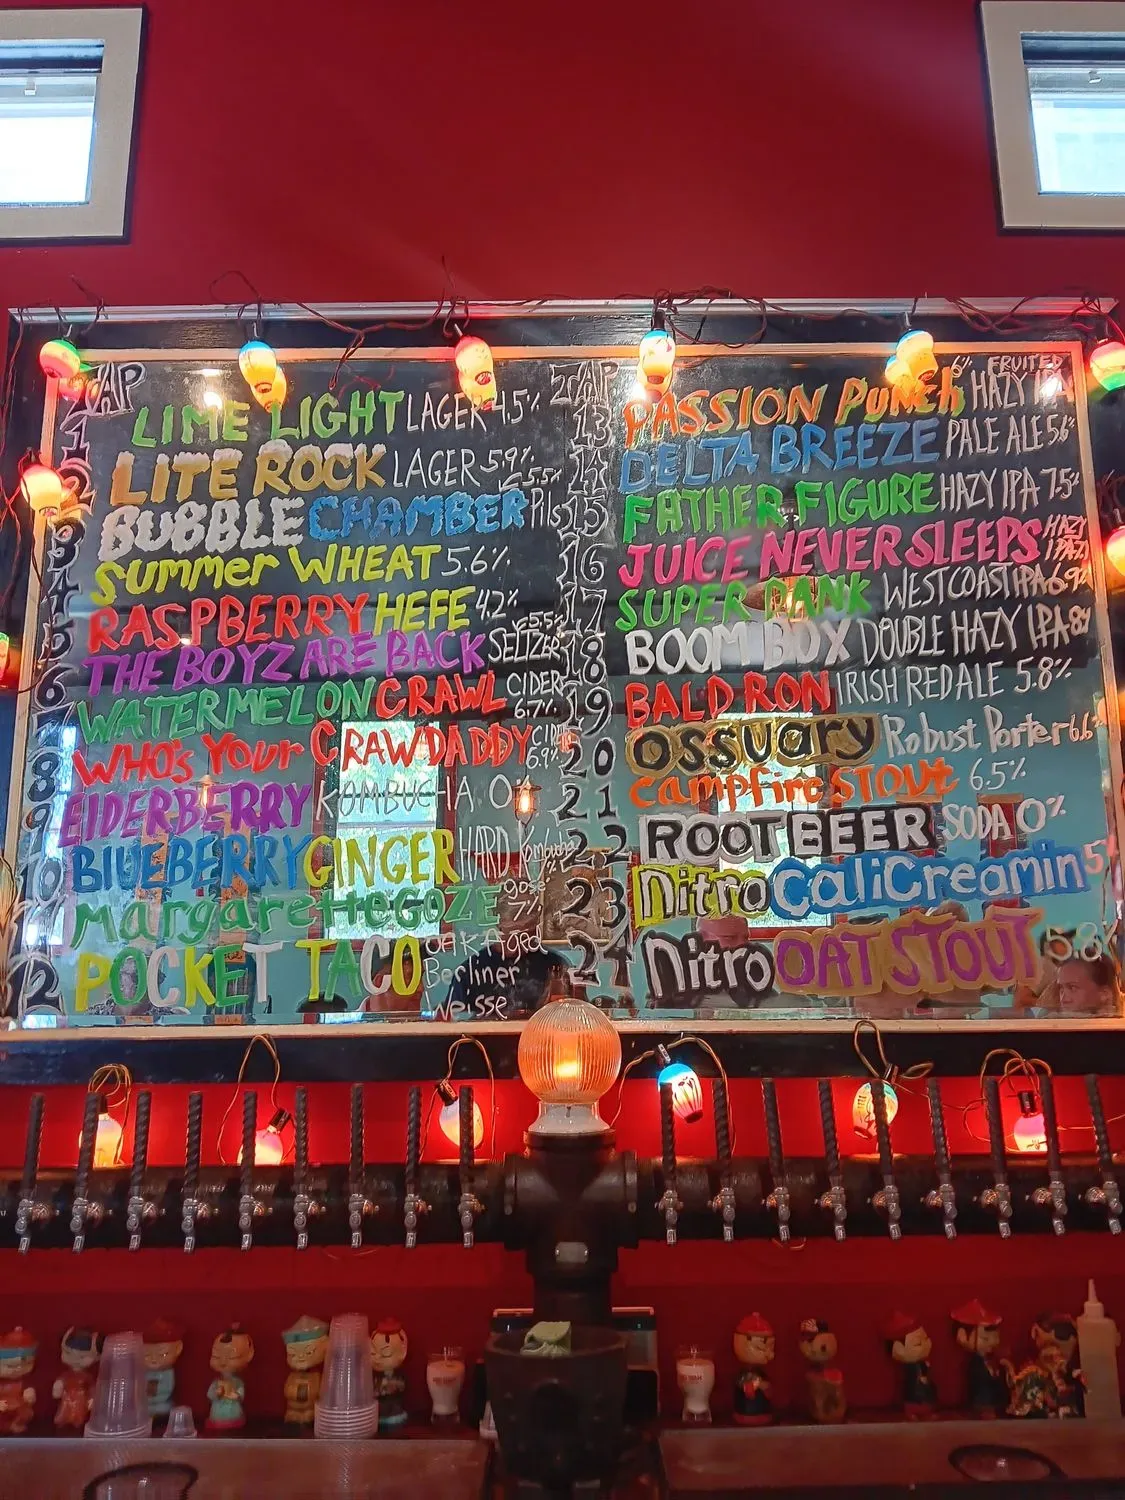 TAP
1 LIME LIGHT LAGER 4.5%
2 LITE ROCK LAGER 5.9%
3 BUBBLE CHAMBER Pils 5.5%
4 Summer WHEAT 5.6%
5 RASPBERRY HEFE 4.2%
6 THE BOYZ ARE BACK SELTZER 5.5%
7 WATERMELON CRAWL CIDER 6.7%
8 WHO'S YOUR CRAWDADDY 6.9%
9 ElDERBERRY KOMBUCHA
10 BLUEBERRY GINGER HARD Kombucha
MargaretteGOZE gose 7%
12 POCKET TACO OAK Aged Berliner Weisse
TAP
13 PASSION PUNCH 6% FRUITED HAZY IPA
14 DELTA BREEZE PALE ALE 5.6%
15 FATHER FIGURE HAZY IPA 7.5%
16 JUICE NEVER SLEEPS HAZY IPA
17 SUPER DANK WEST COAST IPA 6.9%
18 BOOM BOX DOUBLE HAZY IPA 8%
19 BALD RON IRISH RED ALE 5.8%
20 OSSUARY Robust Porter 6.6%
21 campfire STOUT 6.5%
22 ROOT BEER SODA 0%
23 Nitro CaliCreamin 5%
24 Nitro OAT STOUT 5.8%